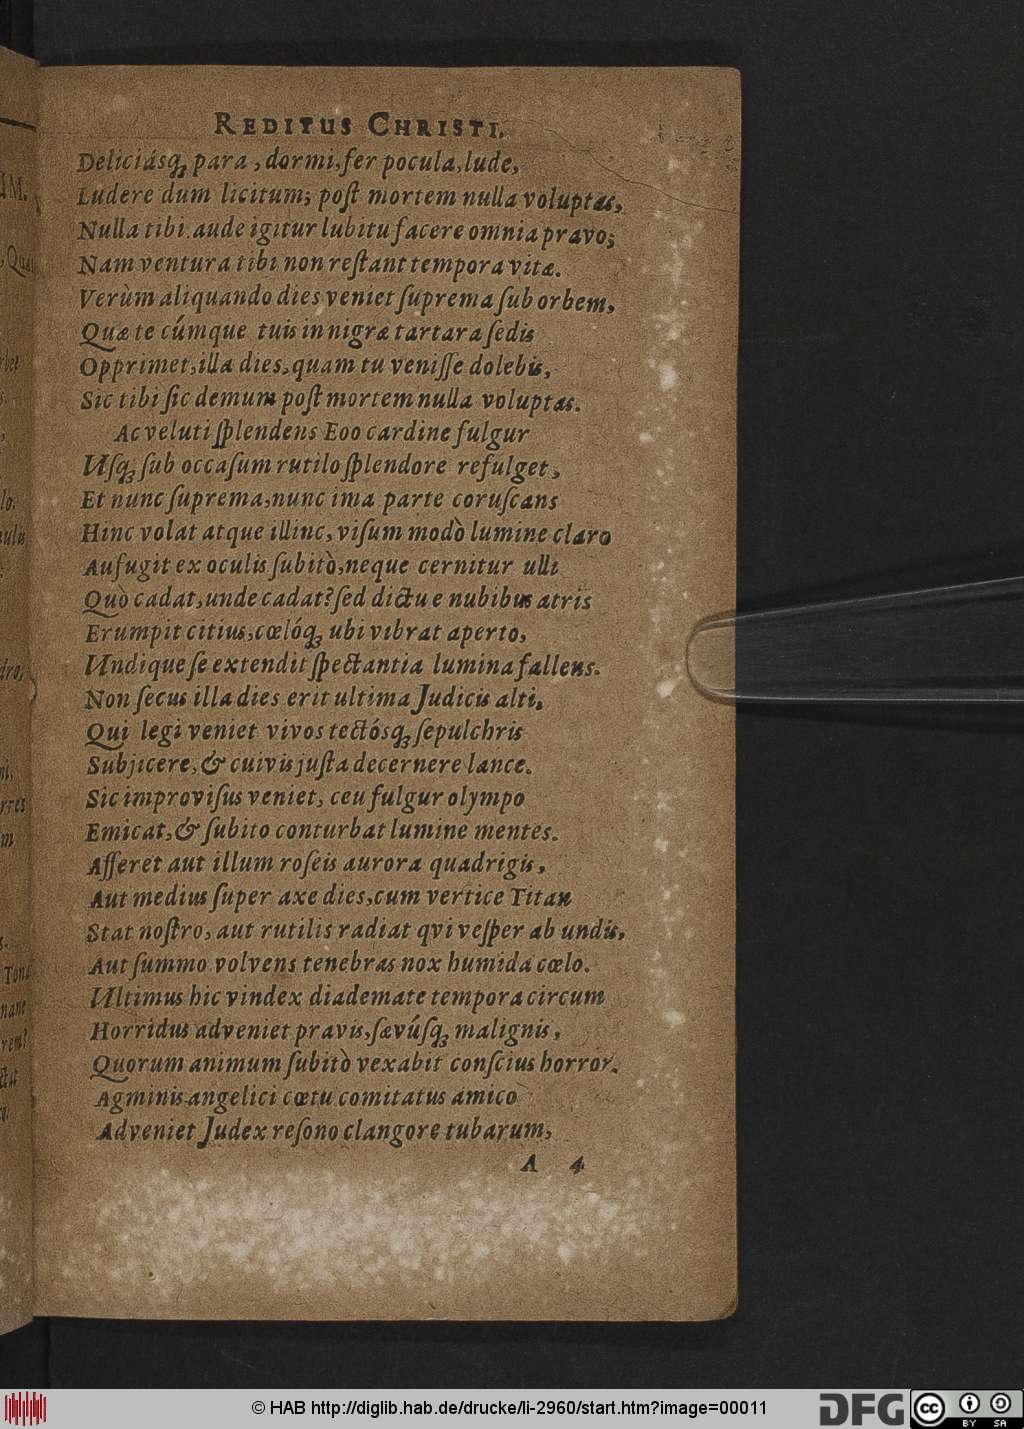 REDITUS CHRISTI.
Deliciásq́; para, dormi, fer pocula, lude,
Ludere dum licitum; poſt mortem nulla voluptas,
Nulla tibi. aude igitur lubitu facere omnia pravo;
Nam ventura tibi non reſtant tempora vitæ.
Verùm aliquando dies veniet ſuprema ſub orbem,
Quæ te cúmque tuis in nigræ tartara ſedis
Opprimet, illa dies, quam tu veniſſe dolebis,
Sic tibi ſic demum poſt mortem nulla voluptas.
Ac veluti ſplendens Eoo cardine fulgur
Uſq; ſub occaſum rutilo ſplendore refulget,
Et nunc ſuprema, nunc ima parte coruſcans
Hinc volat atque illinc, viſum modò lumine claro
Aufugit ex oculis ſubitò, neque cernitur ulli
Quò cadat, unde cadat? ſed dictu e nubibus atris
Erumpit citius, cœlóq; ubi vibrat aperto,
Undique ſe extendit ſpectantia lumina fallens.
Non ſecus illa dies erit ultima Judicis alti,
Qui legi veniet vivos tectósq; ſepulchris
Subjicere, & cuivis juſta decernere lance.
Sic improviſus veniet, ceu fulgur olympo
Emicat, & ſubito conturbat lumine mentes.
Afferet aut illum roſeis aurora quadrigis,
Aut medius ſuper axe dies, cum vertice Titan
Stat noſtro, aut rutilis radiat qvi veſper ab undis,
Aut ſummo volvens tenebras nox humida cœlo.
Ultimus hic vindex diademate tempora circum
Horridus adveniet pravis, ſævúſq; malignis,
Quorum animum ſubitò vexabit conſcius horror.
Agminis angelici cœtu comitatus amico
Adveniet Judex reſono clangore tubarum,
A 4
© HAB http://diglib.hab.de/drucke/li-2960/start.htm?image=00011
DFG
cc
BY SA